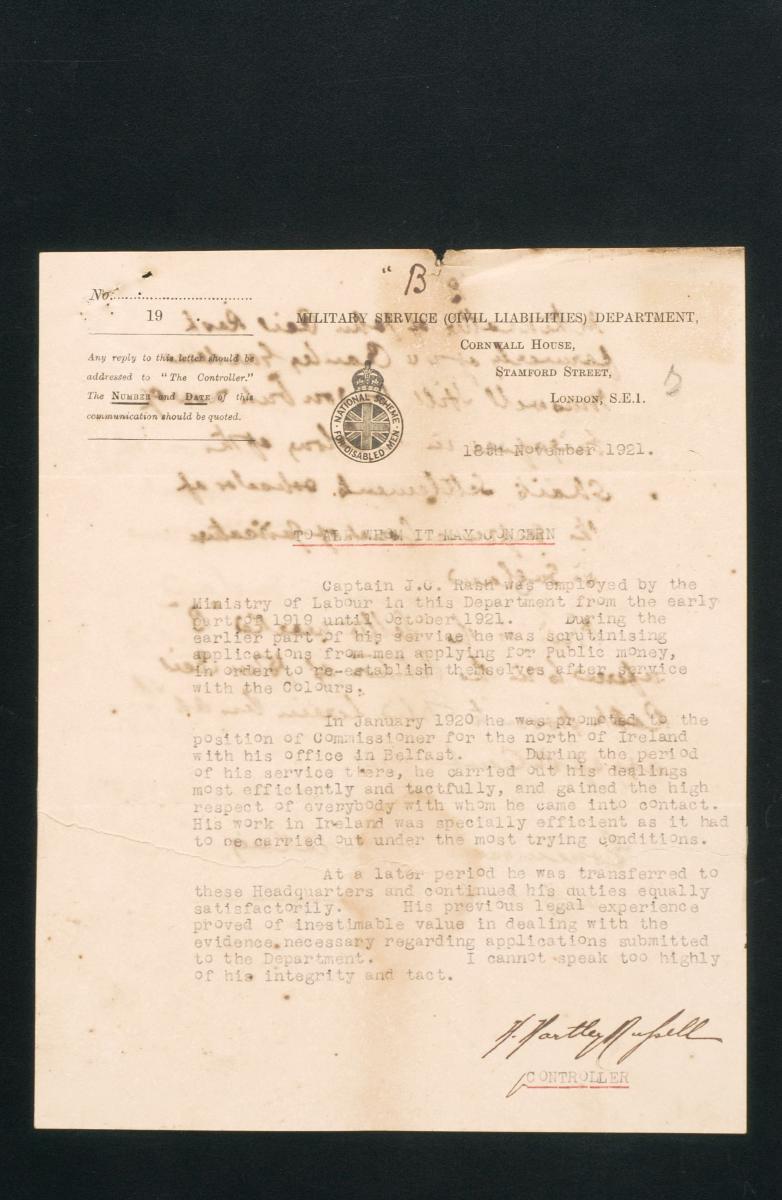 "B"
No.
19
MILITARY SERVICE (CIVIL LIABILITIES) DEPARTMENT,
CORNWALL HOUSE,
STAMFORD STREET,
LONDON, S.E.1.
Any reply to this letter should be
addressed to "The Controller."
The NUMBER and DATE of this
communication should be quoted.
NATIONAL SCHEME
FOR DISABLED MEN
18th November 1921.
TO ALL WHOM IT MAY CONCERN
Captain J.C. Rash was employed by the
Ministry of Labour in this Department from the early
part of 1919 until October 1921. During the
earlier part of his service he was scrutinising
applications from men applying for Public money,
in order to re-establish themselves after service
with the Colours.
In January 1920 he was promoted to the
position of Commissioner for the north of Ireland
with his office in Belfast. During the period
of his service there, he carried out his dealings
most efficiently and tactfully, and gained the high
respect of everybody with whom he came into contact.
His work in Ireland was specially efficient as it had
to be carried out under the most trying conditions.
At a later period he was transferred to
these Headquarters and continued his duties equally
satisfactorily. His previous legal experience
proved of inestimable value in dealing with the
evidence necessary regarding applications submitted
to the Department. I cannot speak too highly
of his integrity and tact.
Hartley Russell
CONTROLLER